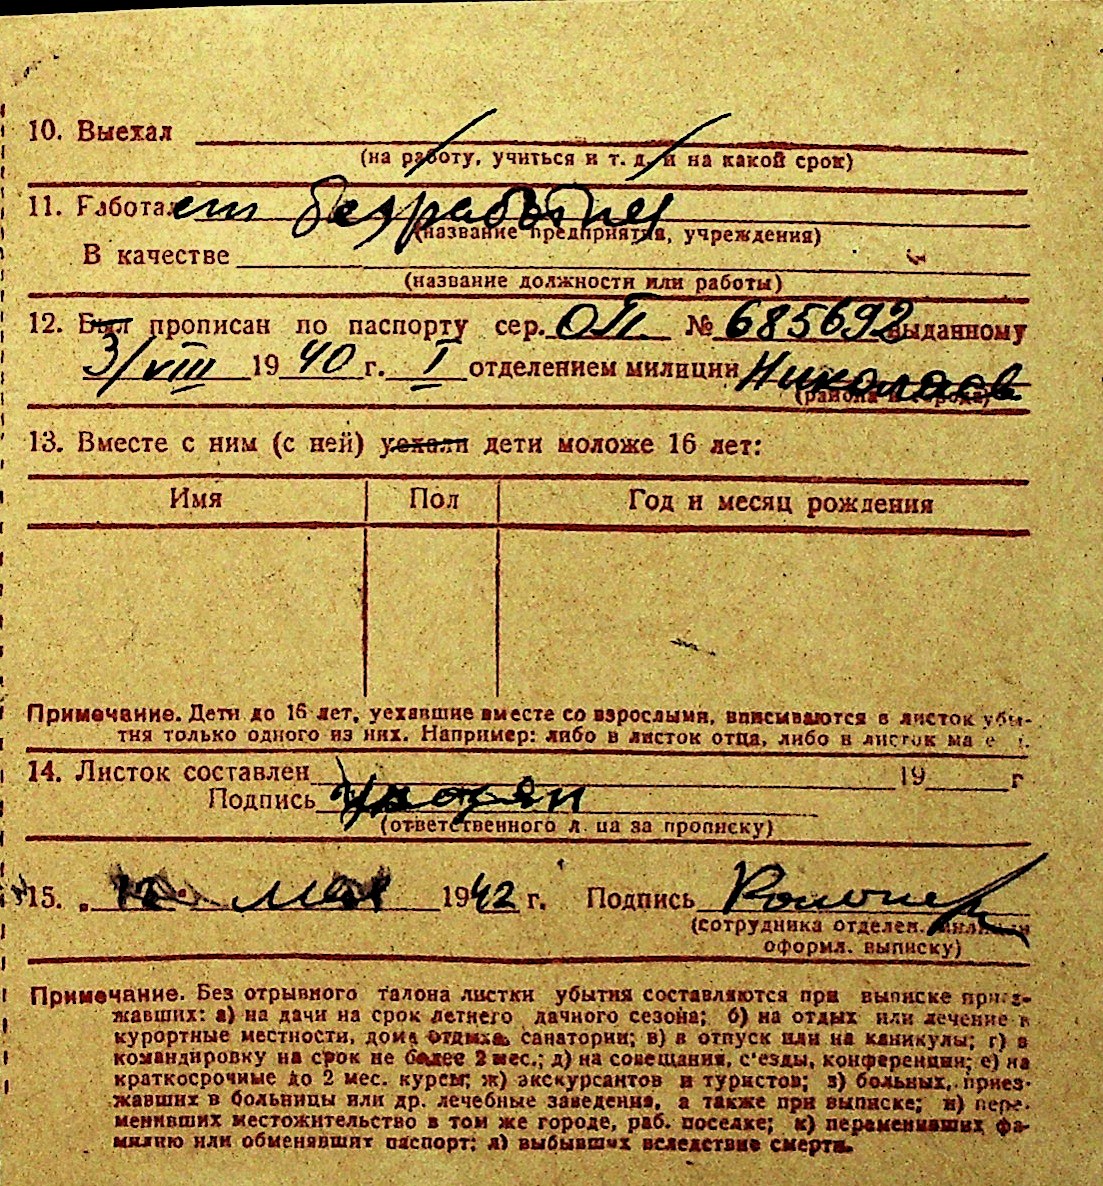 10. Выехал
(на работу, учиться и т. д. и на какой срок)
11. Работает безработный
(название предприятия, учреждения)
В качестве
(название должности или работы)
12. Был прописан по паспорту сер. ОП № 685692 выданному
3/VIII 1940 г. I отделением милиции Николаев
(района и города)
13. Вместе с ним (с ней) уехали дети моложе 16 лет:
Имя Пол Год и месяц рождения
Примечание. Дети до 16 лет, уехавшие вместе со взрослыми, вписываются в листок убы-
тия только одного из них. Например: либо в листок отца, либо в листок
14. Листок составлен 19 г
Подпись
(ответственного лица за прописку)
15. мая 1942 г. Подпись
(сотрудника отделен. милиции
оформл. выписку)
Примечание. Без отрывного талона листки убытия составляются при выписке приез-
жавших: а) на дачи на срок летнего дачного сезона; б) на отдых или лечение в
курортные местности, дома отдыха, санатории; в) в отпуск или на каникулы; г) в
командировку на срок не более 2 мес.; д) на совещания, с'езды, конференции; е) на
краткосрочные до 2 мес. курсы; ж) экскурсантов и туристов; з) больных, приез-
жавших в больницы или др. лечебные заведения, а также при выписке; и) пере-
менивших местожительство в том же городе, раб. поселке; к) переменивших фа-
милию или обменявших паспорт; л) выбывших вследствие смерти.